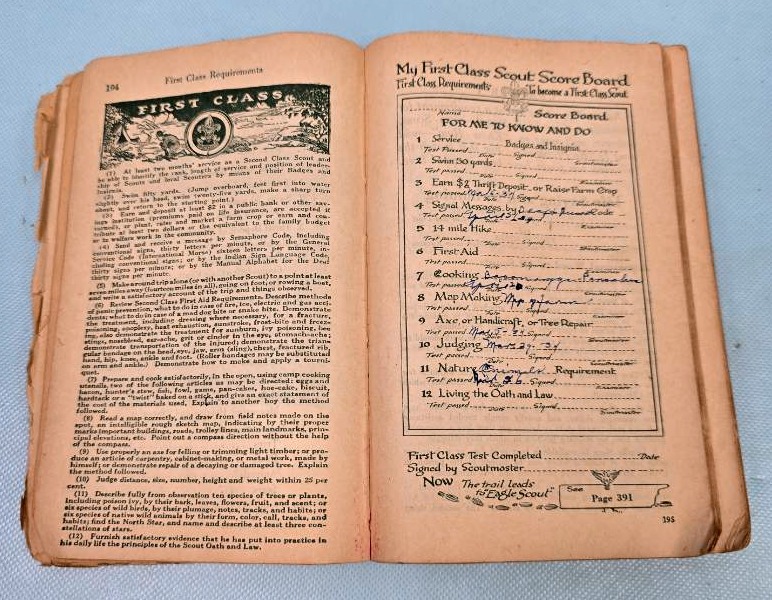 194
First Class Requirements
FIRST CLASS
(1) At least two months' service as a Second Class Scout and
be able to identify the rank, length of service and position of leader-
ship of Scouts and local Scouters by means of their Badges and
Insignia.
(2) Swim fifty yards. (Jump overboard, feet first into water
slightly over his head, swim twenty-five yards, make a sharp turn
about, and return to the starting point.)
(3) Earn and deposit at least $2 in a public bank or other sav-
ings institution (premiums paid on life insurance, are accepted if
earned), or plant, raise and market a farm crop or earn and con-
tribute at least two dollars or the equivalent to the family budget
or to welfare work in the community.
(4) Send and receive a message by Semaphore Code, including
conventional signs, thirty letters per minute, or by the General
Service Code (International Morse) sixteen letters per minute, in-
cluding conventional signs; or by the Indian Sign Language Code,
thirty signs per minute; or by the Manual Alphabet for the Deaf
thirty signs per minute.
(5) Make a round trip alone (or with another Scout) to a point at least
seven miles away (fourteen miles in all), going on foot, or rowing a boat,
and write a satisfactory account of the trip and things observed.
(6) Review Second Class First Aid Requirements. Describe methods
of panic prevention, what to do in case of fire, ice, electric and gas acci-
dents; what to do in case of a mad dog bite or snake bite. Demonstrate
the treatment, including dressing where necessary, for a fracture,
poisoning, apoplexy, heat exhaustion, sunstroke, frost-bite and freez-
ing, also demonstrate the treatment for sunburn, ivy poisoning, bee
stings, nosebleed, ear-ache, grit or cinder in the eye, stomach-ache;
demonstrate transportation of the injured; demonstrate the trian-
gular bandage on the head, eye, jaw, arm (sling), chest, fractured rib,
hand, hip, knee, ankle and foot. (Roller bandages may be substituted
on arm and ankle.) Demonstrate how to make and apply a tourni-
quet.
(7) Prepare and cook satisfactorily, in the open, using camp cooking
utensils, two of the following articles as may be directed: eggs and
bacon, hunter's stew, fish, fowl, game, pan-cakes, hoe-cake, biscuit,
hardtack or a "twist" baked on a stick, and give an exact statement of
the cost of the materials used. Explain to another boy the method
followed.
(8) Read a map correctly, and draw from field notes made on the
spot, an intelligible rough sketch map, indicating by their proper
marks important buildings, roads, trolley lines, main landmarks, prin-
cipal elevations, etc. Point out a compass direction without the help
of the compass.
(9) Use properly an axe for felling or trimming light timber; or pro-
duce an article of carpentry, cabinet-making, or metal work, made by
himself; or demonstrate repair of a decaying or damaged tree. Explain
the method followed.
(10) Judge distance, size, number, height and weight within 25 per
cent.
(11) Describe fully from observation ten species of trees or plants,
including poison ivy, by their bark, leaves, flowers, fruit, and scent; or
six species of wild birds, by their plumage, notes, tracks, and habits; or
six species of native wild animals by their form, color, call, tracks, and
habits; find the North Star, and name and describe at least three con-
stellations of stars.
(12) Furnish satisfactory evidence that he has put into practice in
his daily life the principles of the Scout Oath and Law.
My First Class Scout Score Board
First Class Requirements To become a First Class Scout
Name Score Board
FOR ME TO KNOW AND DO
1 Service Badges and Insignia
Test Passed Date Signed Scoutmaster
2 Swim 50 yards
Test passed Date Signed Examiner
3 Earn $2 Thrift Deposit, or Raise Farm Crop
Test passed Date Signed
4 Signal Messages by Code
Test passed Signed
5 14 mile Hike
Test passed Date Signed
6 First Aid
Test passed Date Signed
7 Cooking
Test passed Signed
8 Map Making Map of
Test passed Date Signed
9 Axe, or Handicraft, or Tree Repair
Test passed Signed
10 Judging Mar 29, 34
Test passed Date Signed
11 Nature Animals Requirement
Test passed Signed
12 Living the Oath and Law
Test passed Date Signed Scoutmaster
First Class Test Completed Date
Signed by Scoutmaster
Now The trail leads to EAGLE Scout
See Page 391
195